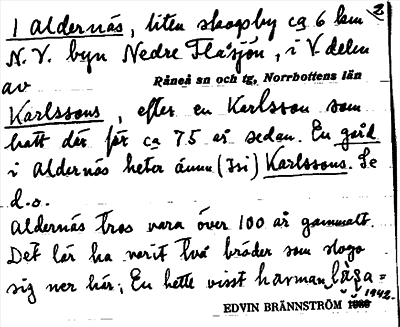 1 Aldernäs, liten skogsby ca 6 km
N.V. byn Nedre Flåsjön, i V. delen
av
Råneå sn och tg, Norrbottens län
Karlssons, efter en Karlsson som
hatt där för ca 75 år sedan. En gård
i Aldernäs heter ännu (Isi) Karlssons. Se
d.o.
Aldernäs tros vara över 100 år gammalt.
Det lär ha varit två bröder som slogo
sig ner här; En hette visst harman
1942.
EDVIN BRÄNNSTRÖM